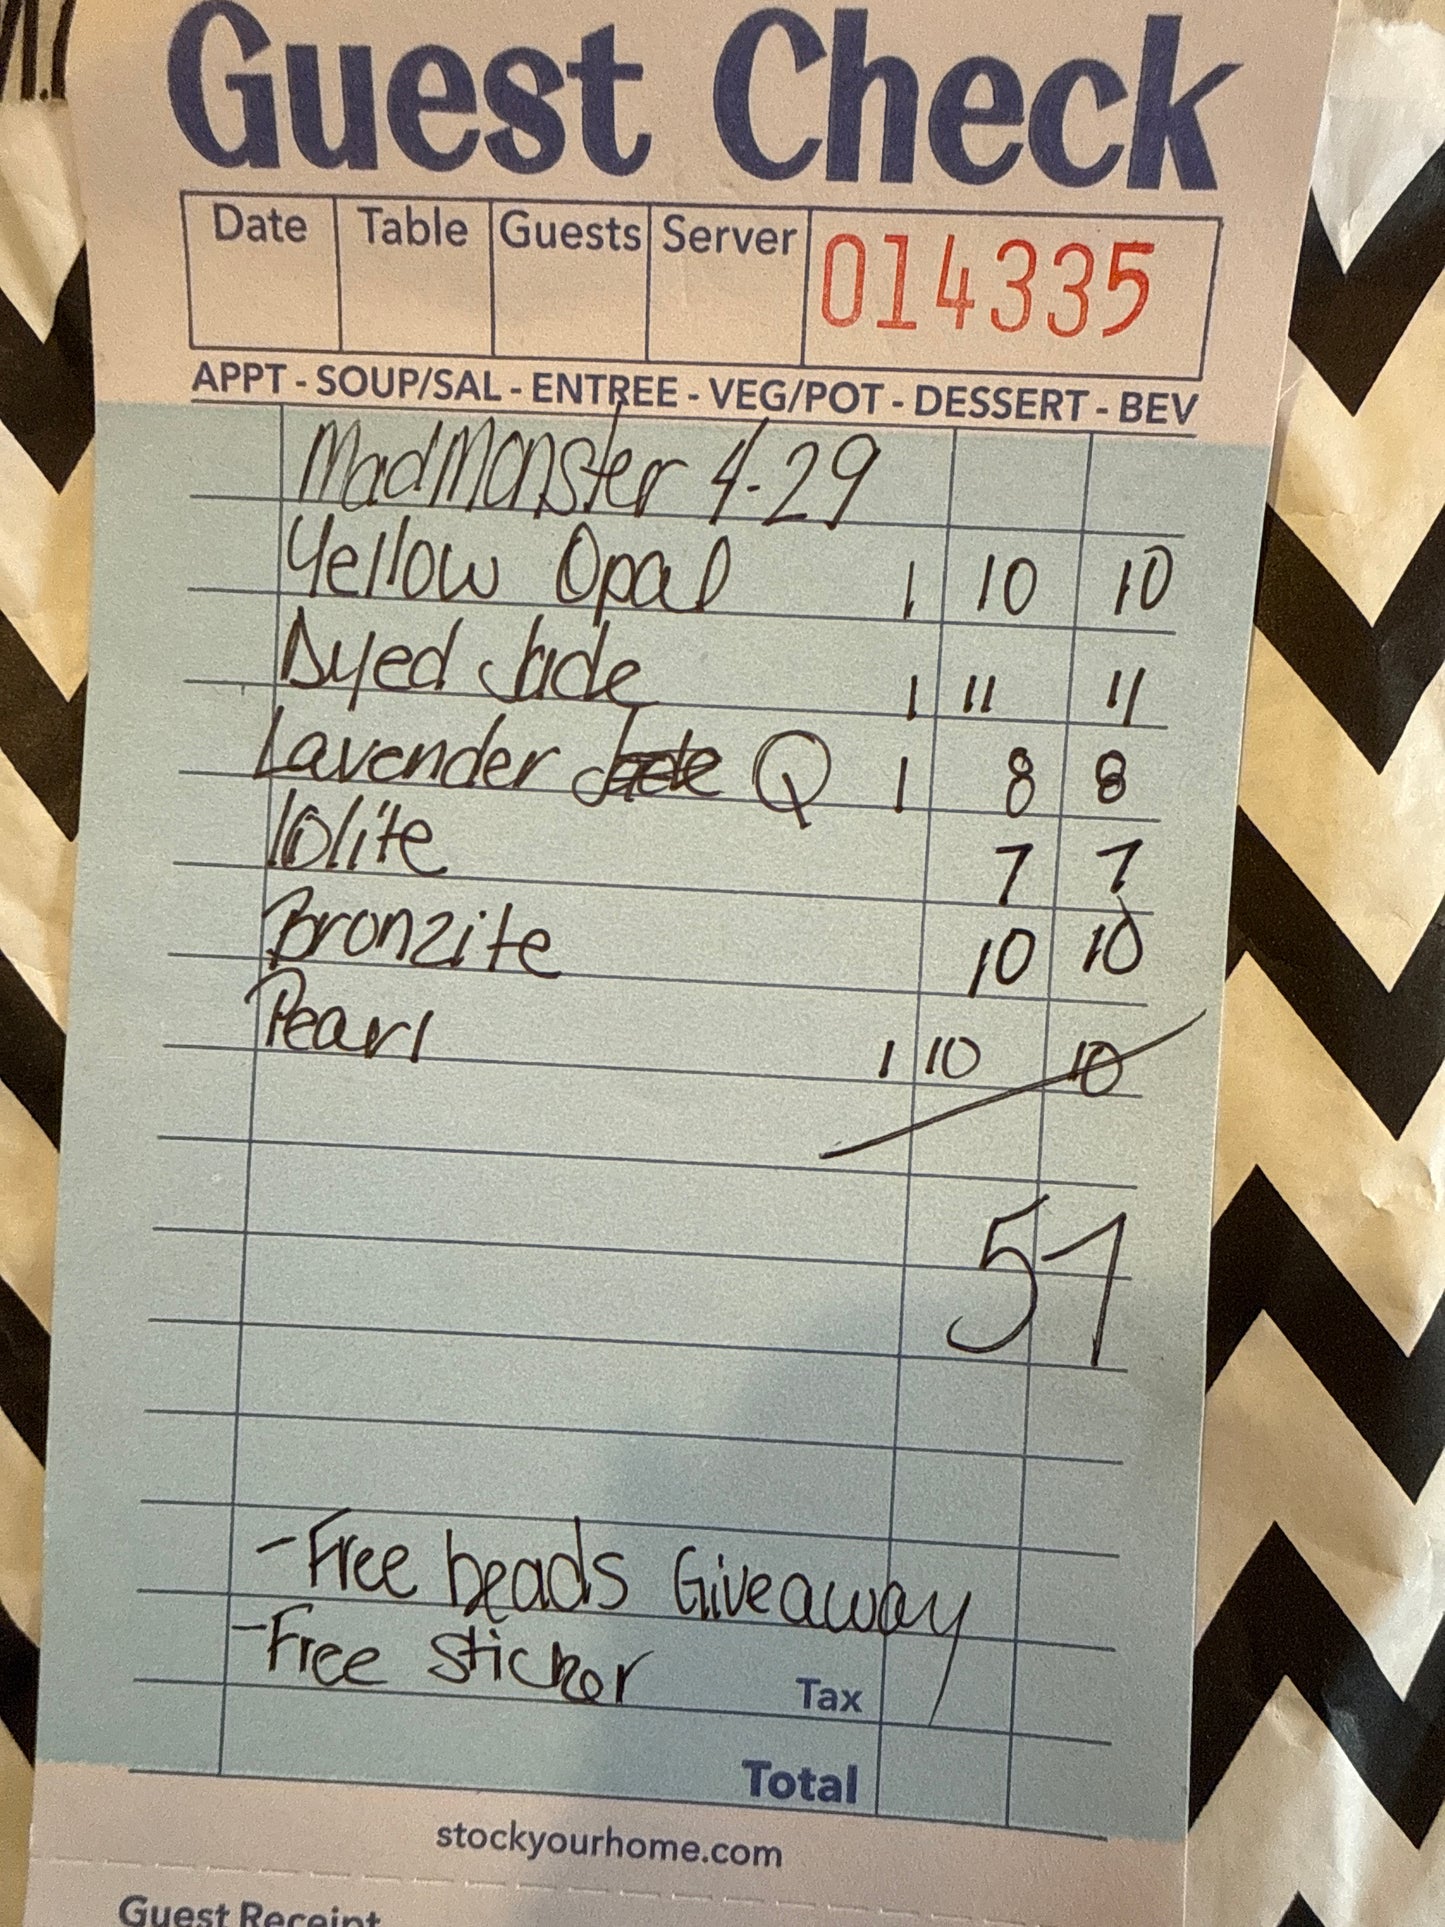 Guest Check
Date Table Guests Server 014335
APPT - SOUP/SAL - ENTREE - VEG/POT - DESSERT - BEV
MadMonster 4-29
Yellow Opal 1 10 10
Dyed Jade 1 11 11
Lavender Jade Q 1 8 8
Iolite 7 7
Bronzite 10 10
Pearl 1 10 10
57
-Free beads Giveaway
-Free sticker
Tax
Total
stockyourhome.com
Guest Receipt